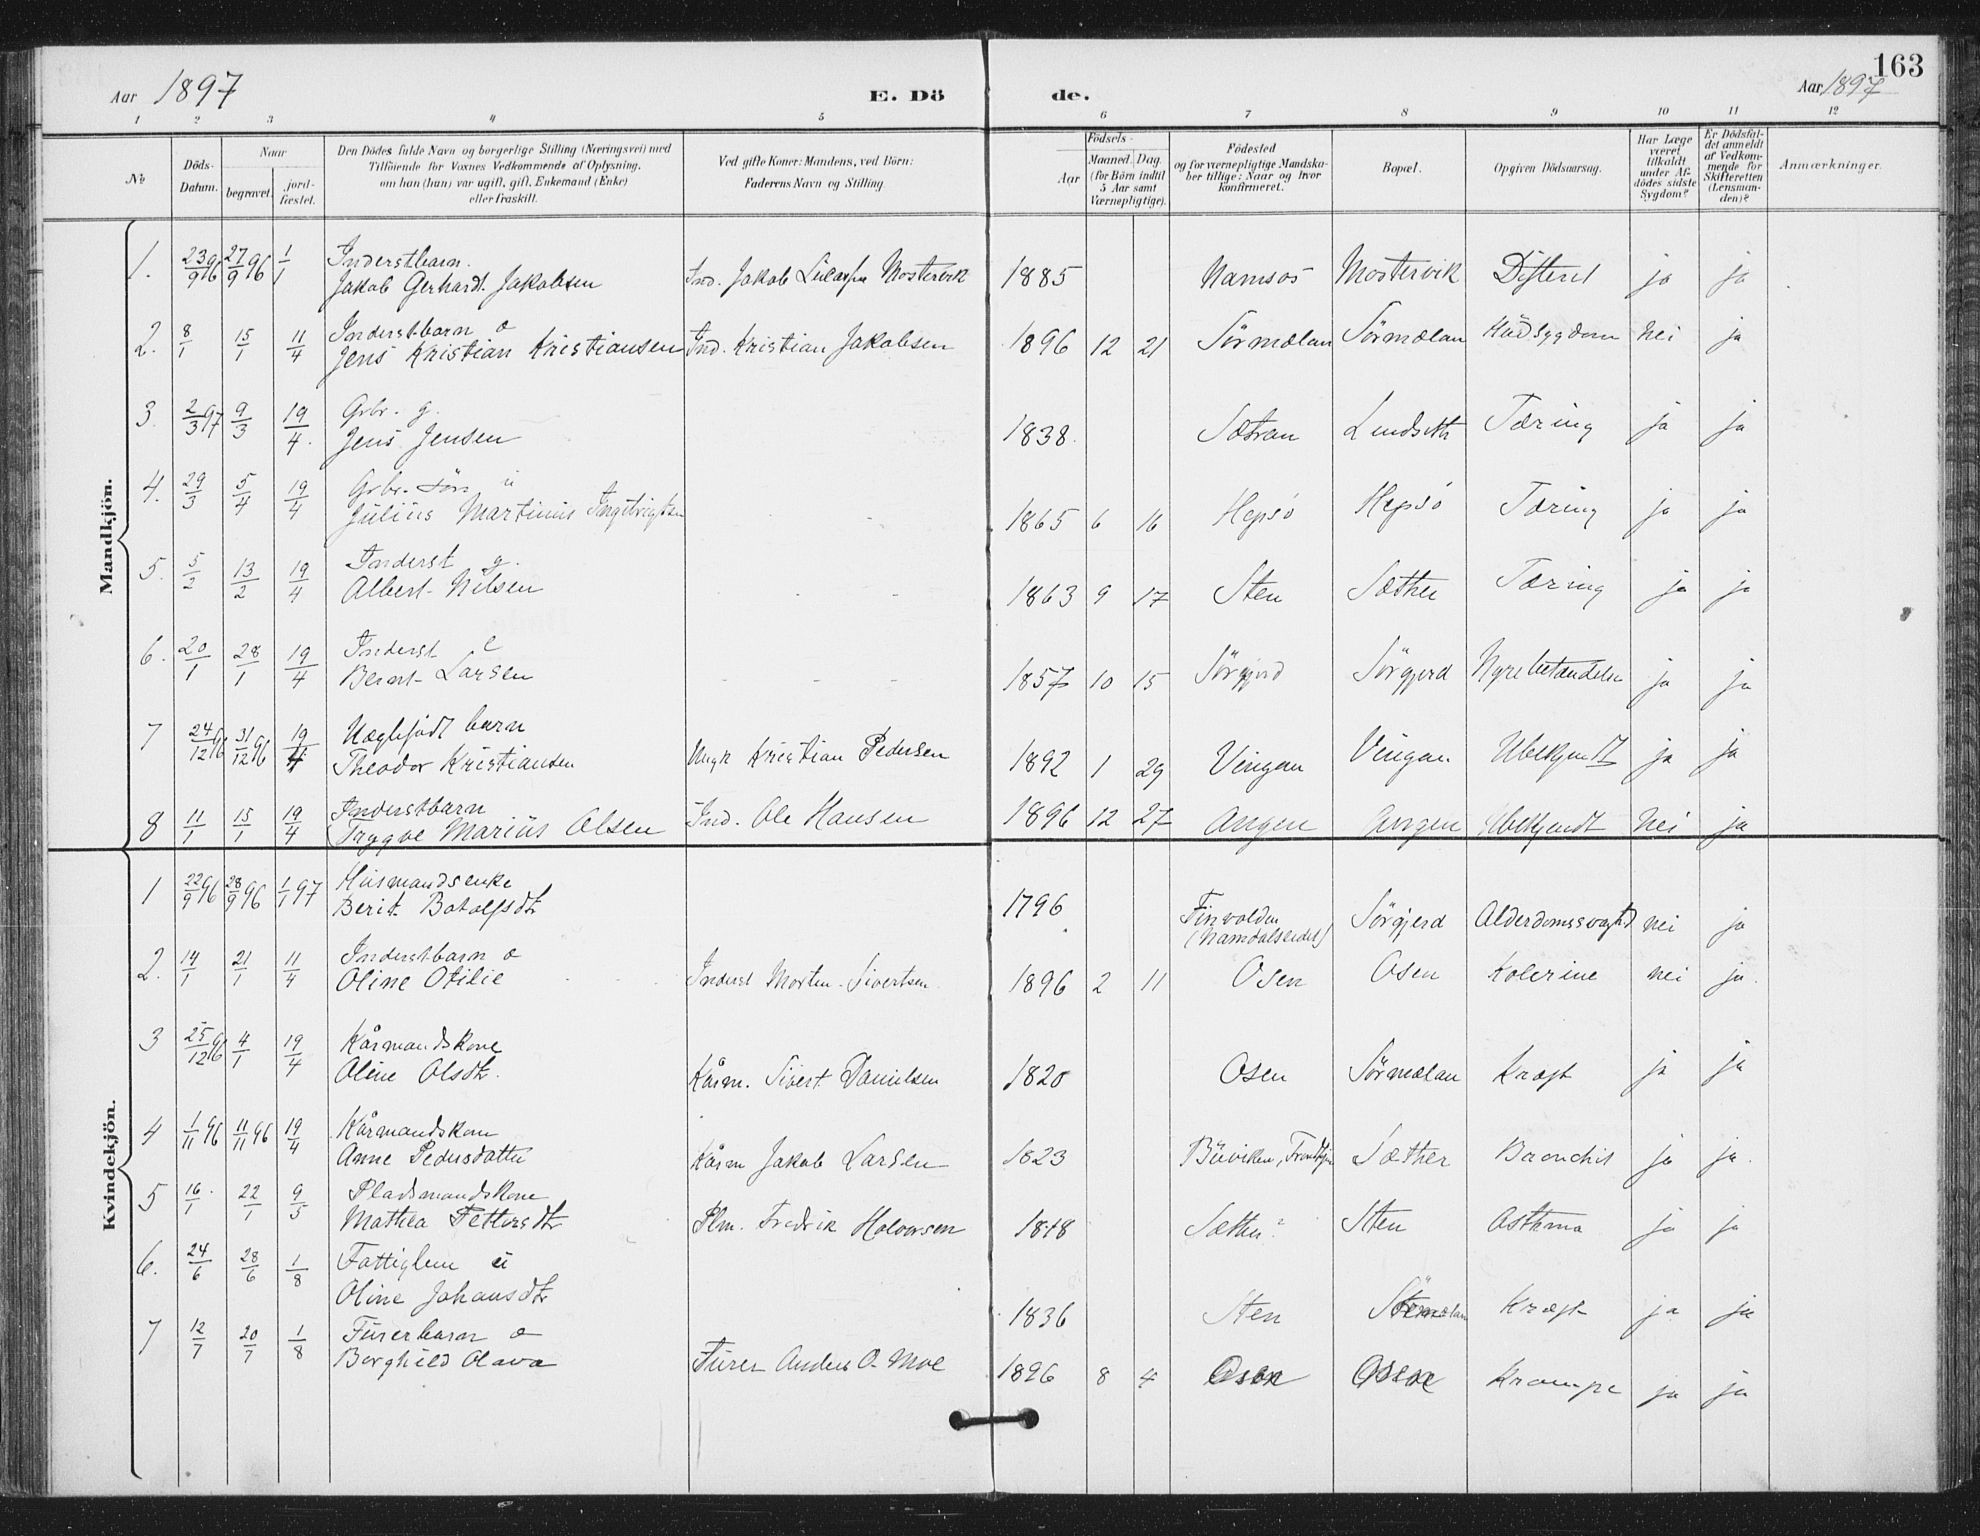 Aar 1897
E. Dö
de.
163
Aar 1897
1 2 3 4 5 6 7 8 9 10 11 12
№
Döds-
Datum.
Naar
begravet.
jord-
fæstet.
Den Dödes fulde Navn og borgerlige Stilling (Næringsvei) med
Tilföiende for Voxnes Vedkommende af Oplysning,
om han (hun) var ugift, gift, Enkemand (Enke)
eller fraskilt.
Ved gifte Koner: Mandens, ved Börn:
Faderens Navn og Stilling
Födsels-
Aar
Maaned. Dag.
(for Börn indtil
5 Aar samt
Værnepligtige).
Födested
og for værnepligtige Mandska-
ber tillige: Naar og hvor
konfirmeret.
Bopæl.
Opgiven Dödsaarsag.
Har Læge
været
tilkaldt
under Af-
dödes sidste
Sygdom?
Er Dödsfal-
det anmeldt
af Vedkom-
mende for
Skifteretten
(Lensman-
den)?
Anmærkninger.
Mandkjön.
1. 23/9 96 27/9 96 1/1 Inderstbarn.
Jakob Gerhardt Jakobsen Ind. Jakob Mostervik 1885 Namsos Mostervik Difterit ja ja
2. 8/1 15/1 11/4 Inderstbarn
Jens Kristian Kristiansen Ind. Kristian Jakobsen 1896 12 21 Sörmælan Sörmælan nei ja
3. 2/3 97 9/3 19/4. Grbr. g.
Jens Jensen 1838. Sætran Lindseth Tæring ja ja
4. 29/3 5/4 19/4 Grbr. sön u
Julius Martinus Ingebrigtsen 1865 6 16 Hepsö Hepsö Tæring ja ja
5. 5/2 13/2 19/4 Inderst g.
Albert Nilsen - - - 1863 9 17 Sten Sæther Tæring ja ja
6. 20/1 28/1 19/4 Inderst e
Bernt Larsen - - - 1857 10 15 Sörgjerd Sörgjerd Nyrebetændelse ja ja
7 24/12 96 31/12 96 19/4 barn
Theodor Kristiansen Kristian Pedersen 1892 1 29 Vingan Vingan Ubekjendt ja ja
8 11/1 15/1 19/4 Inderstbarn
Trygve Marius Olsen Ind. Ole Hansen 1896 12 27 Angen Angen Ubekjendt nei ja
Kvindekjön.
1 22/9 96 28/9 96 1/1 97 Husmandsenke
Berit Botolfsdtr 1796 Finvolden
(Namdalseidet) Sörgjerd Alderdomssvaghd nei ja
2. 14/1 21/1 11/4 Inderstbarn
Oline Otilie Inderst Morten Sivertsen. 1896 2 11 Osen Osen Kolerine nei ja.
3 25/12 96 4/1 19/4 Kårmandskone
Oline Olsdtr. Kårm. Sivert Danielsen 1820 Osen Sörmælan Kræft ja ja
4 1/11 96 11/11 96 19/4 Kårmandskone
Anne Pedersdatter Kårm Jakob Larsen 1823 Buviken, Trondhjem Sæther Bronchit ja ja.
5 16/1. 22/1 9/5 Pladsmandskone
Mathea Pettersdtr Plm. Fredrik Halvorsen 1848 Sæther? Sten Asthma ja ja
6. 24/6 28/6 1/8 Fattiglem u
Oline Johansdtr 1836 Sten Sörmælan Kræft ja ja
7 12/7 20/7 1/8 Furerbarn
Borghild Olava Furer Anders O. Moe 1896 8 4 Osen Osen Krampe ja ja